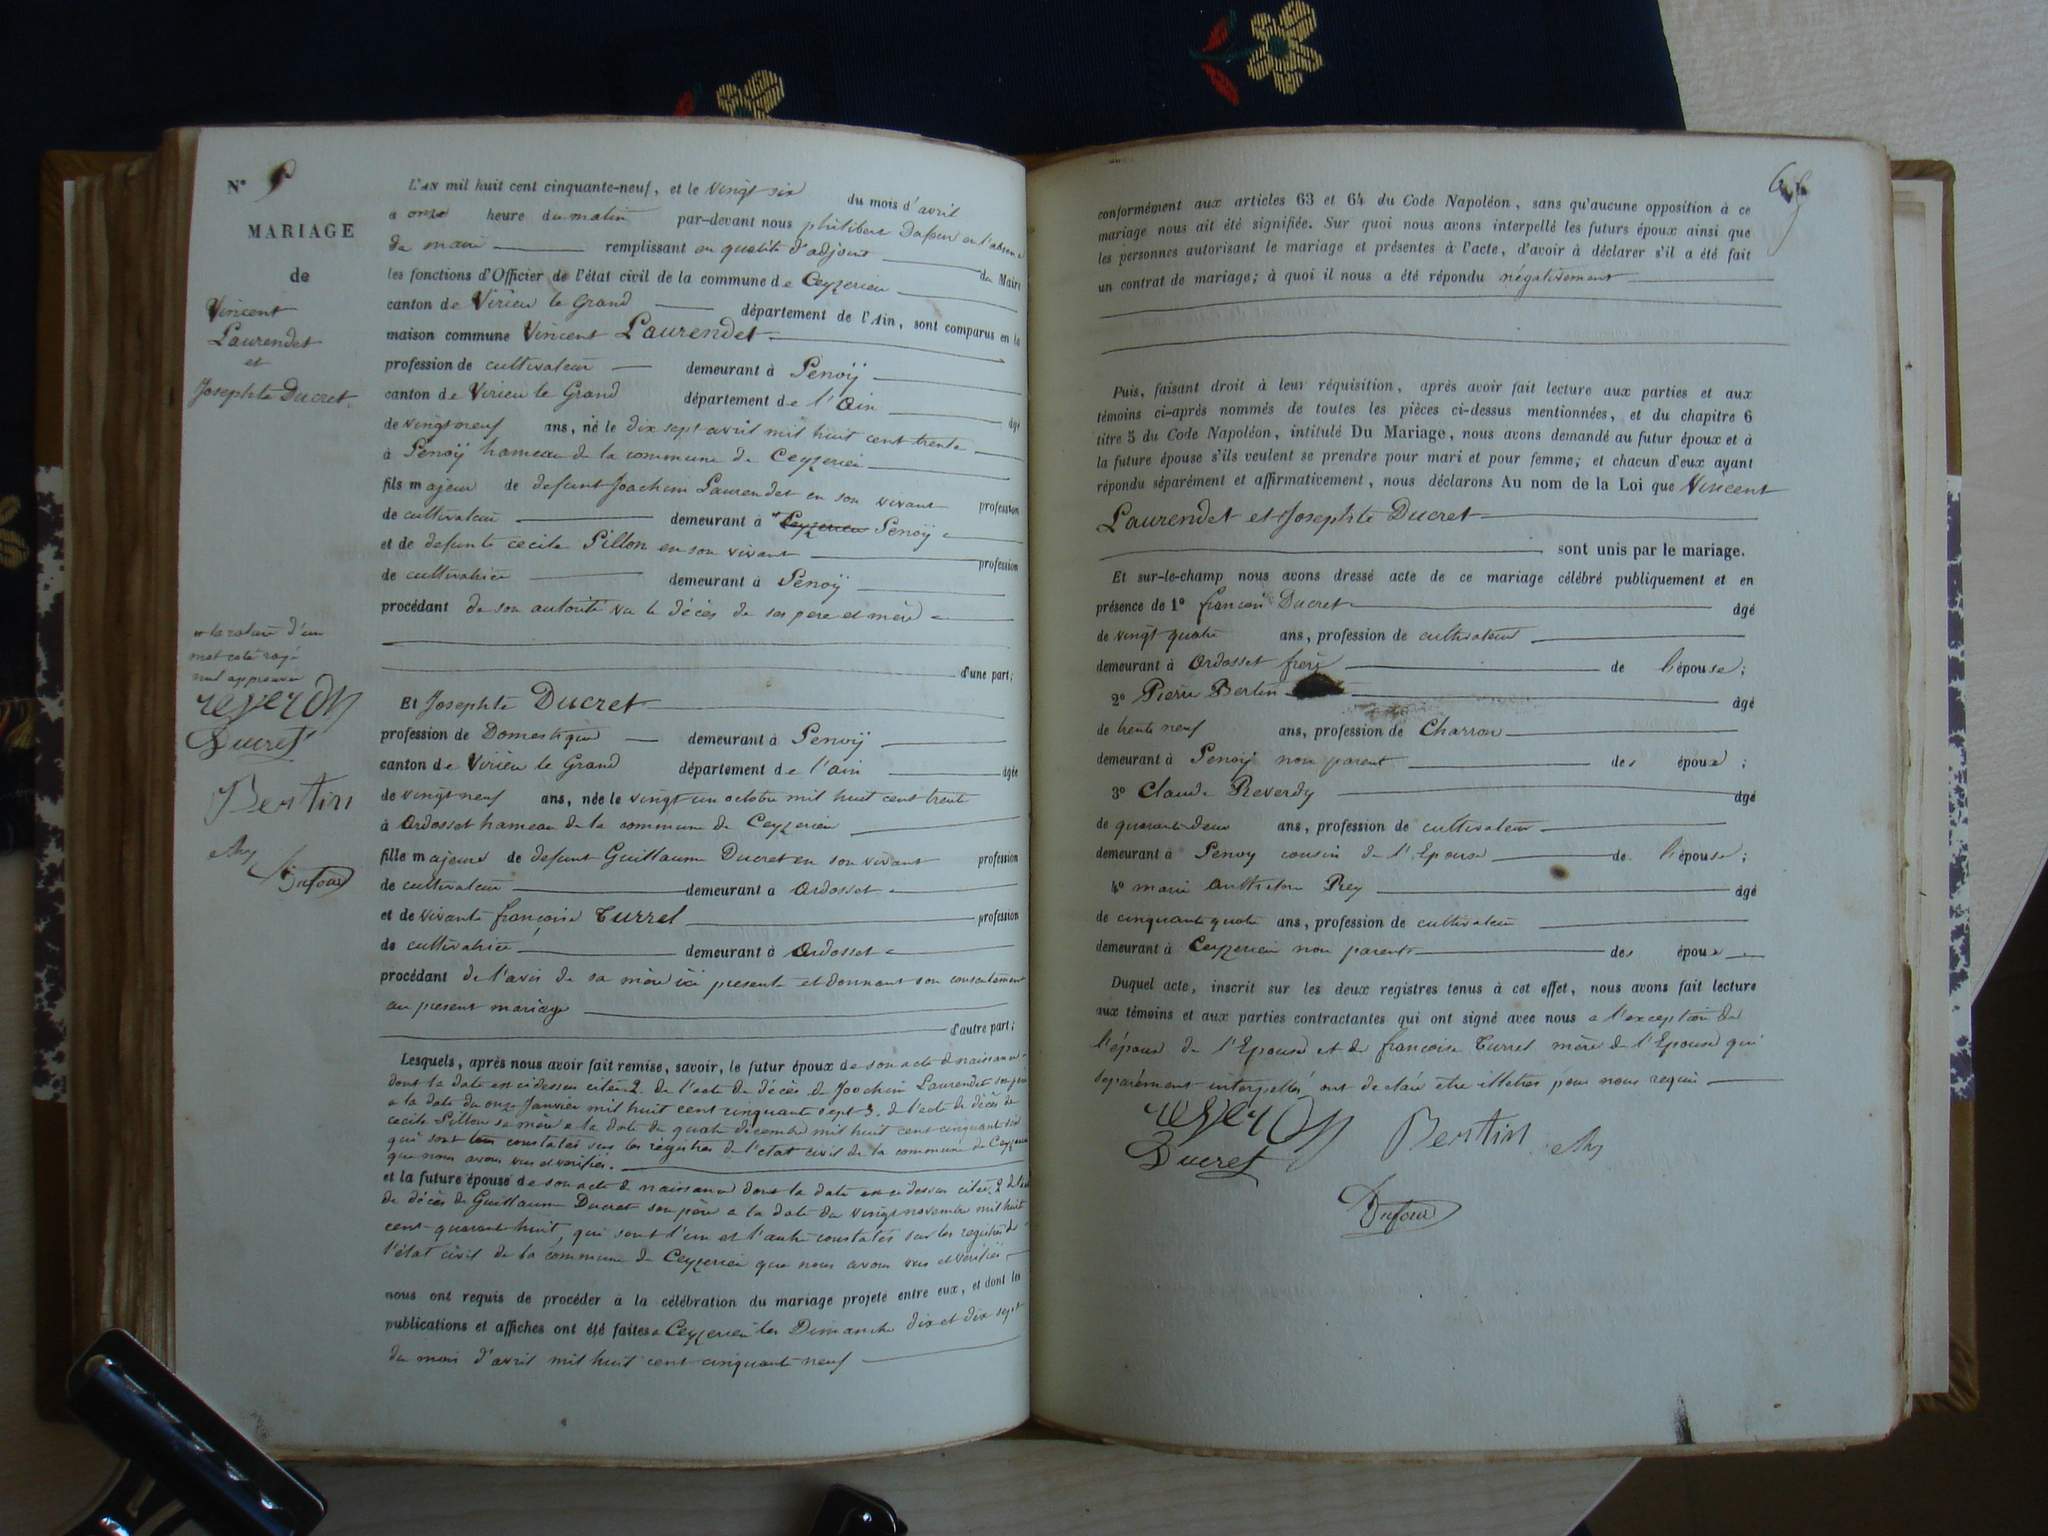 MARIAGE
de
Vincent
Laurendet
et
Josephte Ducret
L'an mil huit cent cinquante-neuf, et le vingt six du mois d'avril
a onze heure du matin par-devant nous philibert Dufour en l'absence
du maire remplissant en qualité d'adjoint du Maire
les fonctions d'Officier de l'état civil de la commune de Ceyzerieu
canton de Virieu le Grand département de l'Ain, sont comparus en la
maison commune Vincent Laurendet
profession de cultivateur demeurant à Senoÿ
canton de Virieu le Grand département de l'Ain âgé
de vingt neuf ans, né le dix sept avril mil huit cent trente
à Senoÿ hameau de la commune de Ceyzerieu
fils majeur de defunt Joachim Laurendet en son vivant profession
de cultivateur demeurant à Ceyzerieu Senoÿ
et de defunte cecile Sillon en son vivant profession
de cultivatrice demeurant à Senoÿ
procédant de son autorité vu le décès de ses pere et mère
la rature d'un
mot coté rayé
nul approuvée
d'une part;
Reverdy
Ducret
Bertin
Dufour
Et Josephte Ducret
profession de Domestique demeurant à Senoÿ
canton de Virieu le Grand département de l'ain âgée
de vingt neuf ans, née le vingt un octobre mil huit cent trente
à Ardosset hameau de la commune de Ceyzerieu
fille majeure de defunt Guillaume Ducret en son vivant profession
de cultivateur demeurant a Ardosset
et de vivante françoise Turrel profession
de cultivatrice demeurant à Ardosset
procédant de l'avis de sa mère ici presente et donnant son consentement
au present mariage
d'autre part;
Lesquels, après nous avoir fait remise, savoir, le futur époux de son acte de naissance
dont la date est ci dessus citée 2. de l'acte de décès de Joachim Laurendet son père
a la date du onze Janvier mil huit cent cinquante sept 3. de l'acte de décès de
cecile Sillon sa mère a la date du quatre décembre mil huit cent cinquante six
qui sont tous constatés sur les régistres de l'état civil de la commune de Ceyzerieu
que nous avons vus et vérifiés.
et la future épouse de son acte de naissance dont la date est ci dessus citée, 2 de l'acte
de décès de Guillaume Ducret son père a la date du vingt novembre mil huit
cent quarante huit, qui sont l'un et l'autre constatés sur les registres de
l'état civil de la commune de Ceyzerieu que nous avons vus et vérifiés
nous ont requis de procéder à la célébration du mariage projeté entre eux, et dont les
publications et affiches ont été faites a Ceyzerieu les Dimanche dix et dix sept
du mois d'avril mil huit cent cinquante neuf
conformément aux articles 63 et 64 du Code Napoléon, sans qu'aucune opposition à ce
mariage nous ait été signifiée. Sur quoi nous avons interpellé les futurs époux ainsi que
les personnes autorisant le mariage et présentes à l'acte, d'avoir à déclarer s'il a été fait
un contrat de mariage; à quoi il nous a été répondu négativement
Puis, faisant droit à leur réquisition, après avoir fait lecture aux parties et aux
témoins ci-après nommés de toutes les pièces ci-dessus mentionnées, et du chapitre 6
titre 5 du Code Napoléon, intitulé Du Mariage, nous avons demandé au futur époux et à
la future épouse s'ils veulent se prendre pour mari et pour femme; et chacun d'eux ayant
répondu séparément et affirmativement, nous déclarons Au nom de la Loi que Vincent
Laurendet et Josephte Ducret
sont unis par le mariage.
Et sur-le-champ nous avons dressé acte de ce mariage célébré publiquement et en
présence de 1º françois Ducret âgé
de vingt quatre ans, profession de cultivateur
demeurant à Ardosset frere de l'épouse;
2º Pierre Bertin âgé
de trente neuf ans, profession de Charron
demeurant à Senoÿ non parent des époux;
3º Claude Reverdy âgé
de quarante deux ans, profession de cultivateur
demeurant à Senoy cousin de l'Epouse de l'épouse;
4º marie Anthelme Rey âgé
de cinquante quatre ans, profession de cultivateur
demeurant à Ceyzerieu non parent des époux
Duquel acte, inscrit sur les deux registres tenus à cet effet, nous avons fait lecture
aux témoins et aux parties contractantes qui ont signé avec nous a l'exception de
l'époux de l'Epouse et de françoise Turrel mère de l'Epouse qui
séparément interpellés ont déclaré etre illetrés pour nous requis
Reverdy
Bertin
Ducret
Dufour